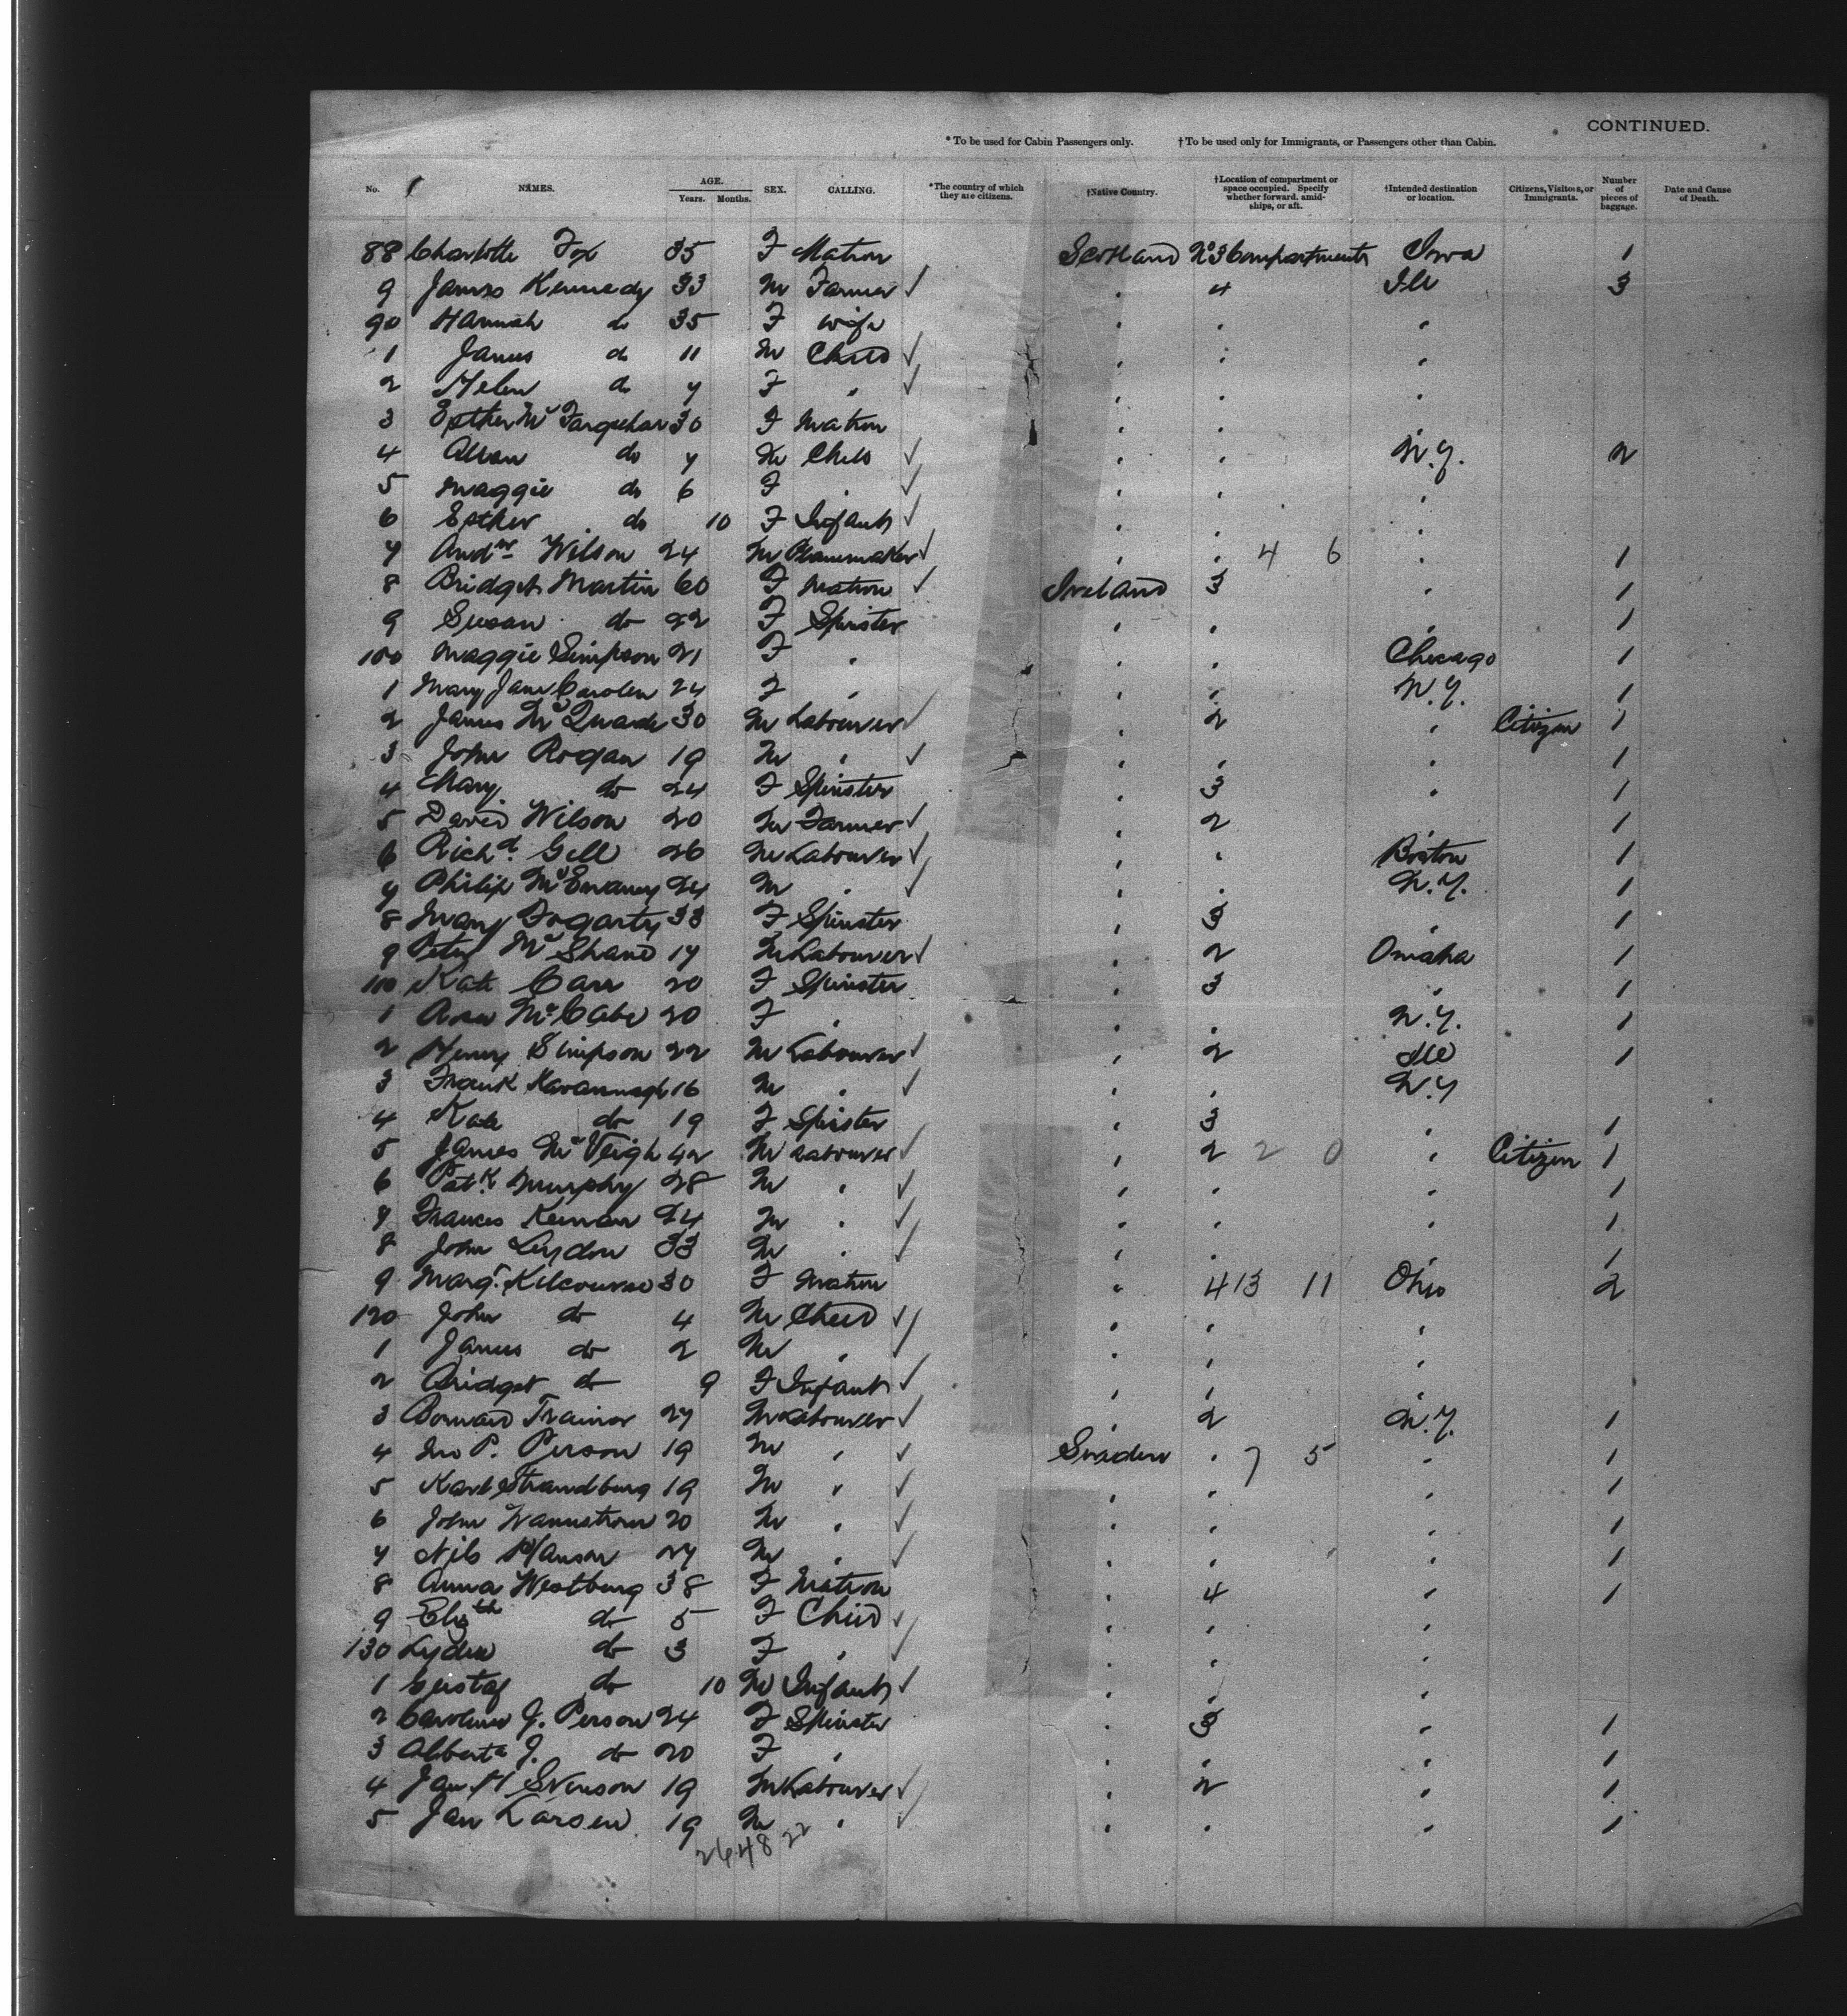 CONTINUED.
* To be used for Cabin Passengers only. † To be used only for Immigrants, or Passengers other than Cabin.
No. NAMES. AGE. Years. Months. SEX. CALLING. *The country of which they are citizens. †Native Country. †Location of compartment or space occupied. Specify whether forward, amidships, or aft. †Intended destination or location. Citizens, Visitors, or Immigrants. Number of pieces of baggage. Date and Cause of Death.
88 Charlotte Fox 35 F Matron Scotland No 3 Compartments Iowa 1
9 James Kennedy 33 M Farmer ✓ " 4 Ill 3
90 Hannah do 35 F Wife " " "
1 James do 11 M Child ✓ " " "
2 Helen do 7 F " ✓ " " "
3 Esther McFarquhar 30 F Matron " " "
4 Allan do 7 M Child ✓ " " N.Y. 2
5 Maggie do 6 F " ✓ " " "
6 Esther do 10 F Infant ✓ " " "
7 Andw Wilson 24 M ✓ " " 4 6 " 1
8 Bridget Martin 60 F Matron ✓ Ireland 3 " 1
9 Susan do 22 F Spinster " " " 1
100 Maggie Simpson 21 F " " " Chicago 1
1 Mary Jane Carolen 24 F " " " N.Y. 1
2 James McQuade 30 M Labourer ✓ " 2 " Citizen 1
3 John Rogan 19 M " ✓ " " " 1
4 Mary do 24 F Spinster " 3 " 1
5 David Wilson 20 M Farmer ✓ " 2 " 1
6 Richd. Gell 26 M Labourer ✓ " " Boston 1
7 Philip McEnaney 24 M " ✓ " " N.Y. 1
8 Mary Fogarty 33 F Spinster " 3 " 1
9 Peter McShane 17 M Labourer ✓ " 2 Omaha 1
110 Kate Carr 20 F Spinster " 3 " 1
1 Rose McCabe 20 F " " " N.Y. 1
2 Henry Simpson 22 M Labourer ✓ " 2 Ill 1
3 Frank Kavannagh 16 M " ✓ " " N.Y
4 Kate do 19 F Spister " 3 " 1
5 James McVeigh 42 M Labourer ✓ " 2 2 0 " Citizen 1
6 Patk. Murphy 28 M " ✓ " " " 1
7 Frances Keenan 24 M " ✓ " " " 1
8 John Leydon 33 M " ✓ " " " 1
9 Margt. Kilcourse 30 F Matron " 4 13 11 Ohio 2
120 John do 4 M Child ✓ " " "
1 James do 2 M " ✓ " " "
2 Bridget do 9 F Infant ✓ " " "
3 Bernard Trainor 27 M Labourer ✓ " 2 N.Y. 1
4 Jno P. Person 19 M " ✓ Sweden " 7 5 " 1
5 Karl Strandburg 19 M " ✓ " " " 1
6 John Wannstrom 20 M " ✓ " " " 1
7 Nils Hanson 27 M " ✓ " " " 1
8 Anna Westburg 38 F Matron " 4 " 1
9 Elizth do 5 F Child ✓ " " "
130 Lydia do 3 F " ✓ " " "
1 Gustaf do 10 M Infant ✓ " " "
2 Caroline J. Person 24 F Spinster " 3 " 1
3 Alberta J. do 20 F " " " " 1
4 Jan H Svenson 19 M Labourer ✓ " 2 " 1
5 Jan Larsen 19 M " ✓ " " " 1
26 48 22